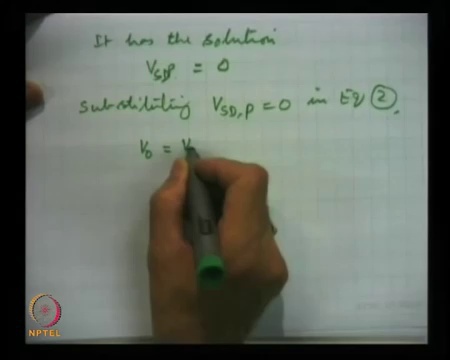 It has the solution
VSDP = 0
substituting VSD,P = 0 in Eq 2.
V0 = V
NPTEL